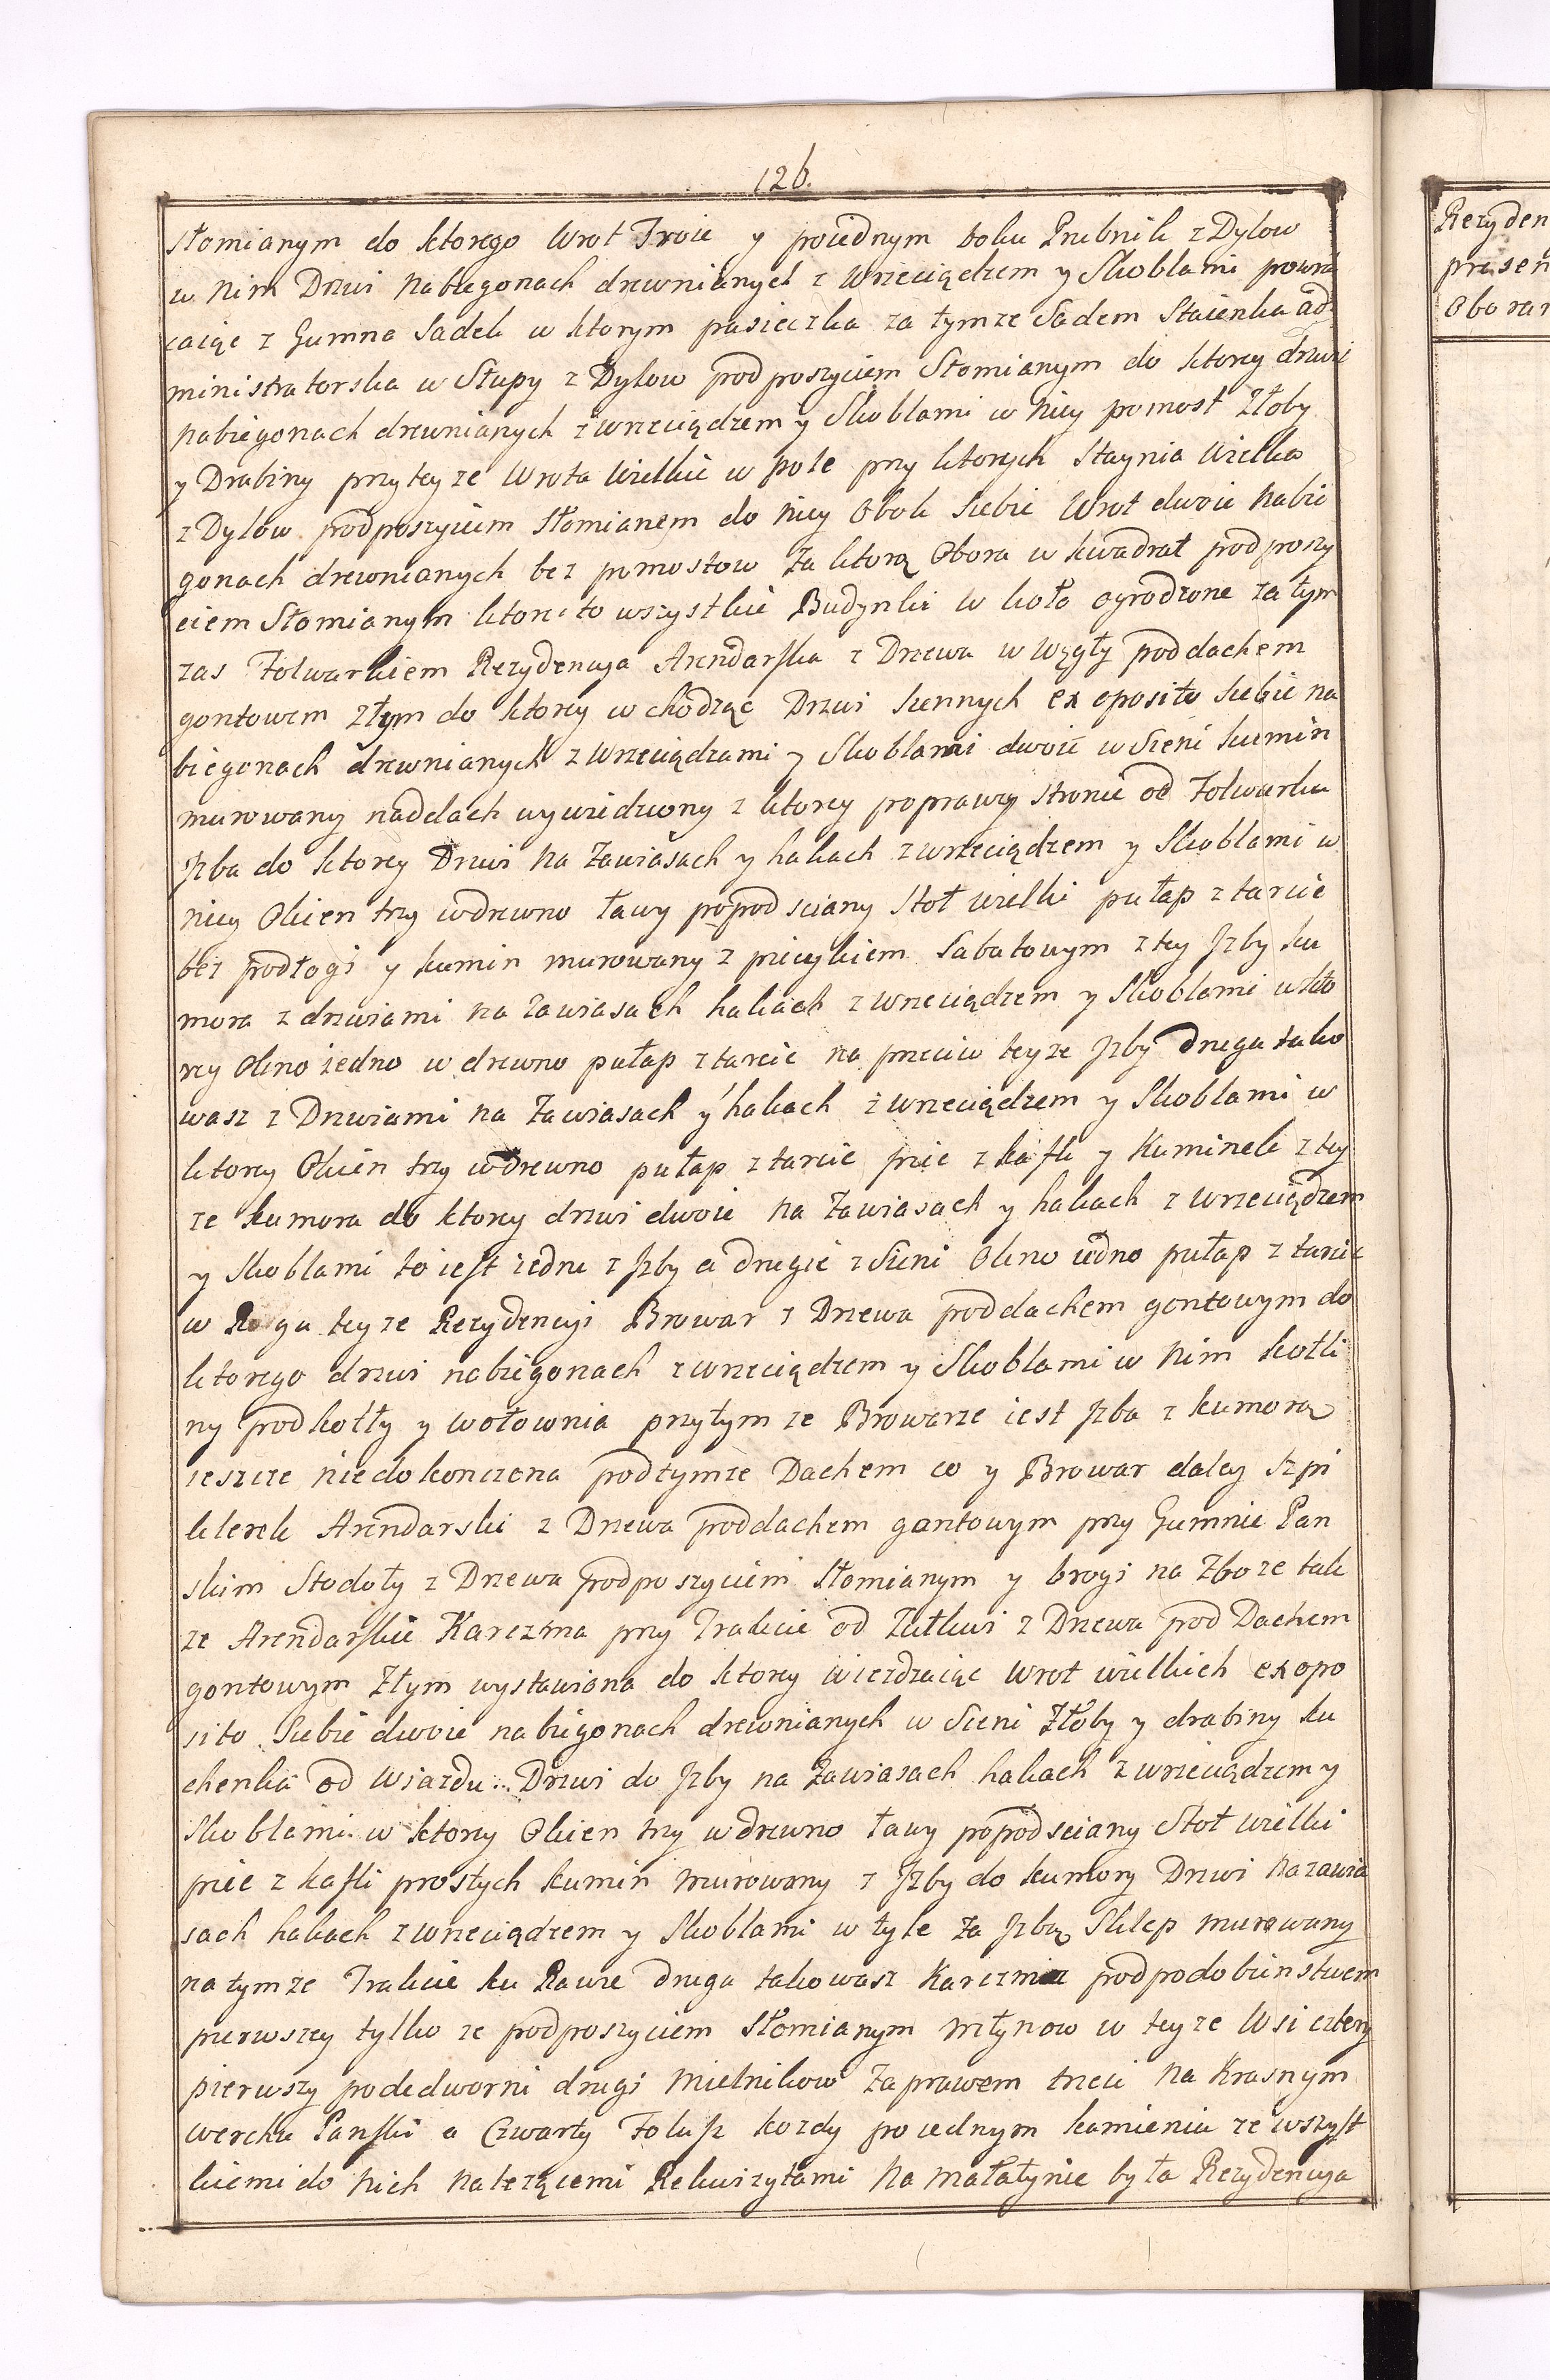 126.
słomianym do ktorego Wrot Troie y poiednym boku Przebnik z Dylow
w nim Drzwi nabiegonach drewnianych z Wrzeciądzem y Skoblami powra
caiąc z Gumna Sadek w ktorym pasieczka za tymze Sadem Staienka ad
ministratorska w Słupy z Dylow pod poszyciem Słomianym do ktorey drzwi
nabiegonach drewnianych z wrzeciądzem y Skoblami w niey pomost Złoby
y Drabiny przy teyze Wrota Wielkie w pole przy ktorych Staynia Wielka
z Dylow podposzyciem słomianem do niey Obok Siebie Wrot dwoie nabie
gonach drewnianych bez pomostow za ktorą Obora w kwadrat podposzy
ciem Słomianym ktore to wszystkie Budynki w koło ogrodzone za tym
zas Folwarkiem Rezydencya Arendarska z Drzewa w Węgły poddachem
gontowem złym do ktorey wchodząc Drzwi siennych ex oposito siebie na
biegonach drewnianych z wrzeciądzami y Skoblami dwoie w Sieni kumin
murowany naddach wywiedziony z ktorey poprawey stronie od Folwarku
Jzba do ktorey Drzwi na Zawiasach y hakach z wrzeciądzem y Skoblami w
niey Okien trzy wdrewno ławy popod sciany Stoł wielki pułap z tarcic
bez podłogi y kumin murowany z piecykiem Sabatowym z tey Jzby ku
mora z drzwiami na zawiasach hakach z wrzeciądzem y Skoblami w kto
rey Okno iedno w drewno pułap z tarcic na przeciw teyze Jzby druga tako
wasz z Drzwiami na Zawiasach y hakach z wrzeciądzem y Skoblami w
ktorey Okien trzy w drewno pułap z tarcic piec z kafli y Kuminek z tey
ze kumora do ktorey drzwi dwoie na Zawiasach y hakach z wrzeciądzem
y Skoblami to iest iedne z Jzby a drugie z Sieni Okno iedno pułap z tarcic
w Rogu teyze Rezydencyi Browar z Drzewa poddachem gontowym do
ktorego drzwi nabiegonach z wrzeciądzem y Skoblami w nim kotli
ny pod kotły y wołownia przytym ze Browarze iest Jzba z kumorą
ieszcze niedokonczona podtymze Dachem co y Browar daley Szpi
klerek Arendarski z Drzewa poddachem gontowym przy Gumnie Pan
skim Stodoły z Drzewa podposzyciem Słomianym y brogi na Zboze tak
ze Arendarskie Karczma przy Trakcie od Zułkwi z Drzewa pod Dachem
gontowym Złym wystawiona do ktorey wiezdzaiąc Wrot wielkich exopo
sito Siebie dwoie nabiegonach drewnianych w Sieni Złoby y drabiny ku
chenka od Wiazdu.. Drzwi do Jzby na Zawiasach hakach z wrzeciądzem y
Skoblami w ktorey Okien trzy wdrewno ławy popod sciany Stoł wielki
piec z kafli prostych kumin murowany z Jzby do kumory Drzwi nazawia
sach hakach z wrzeciądzem y Skoblami w tyle za Jzbą Sklep murowany
na tymze Trakcie ku Rawie druga takowasz Karczma podpodobienstwem
pierwszey tylko ze podposzyciem Słomianym młynow w teyze Wsi cztery
pierwszy podedworni drugi Mielnikow Zaprawem trzeci na Krasnym
wercku Panski a Czwarty Folusz kozdy poiednym kamieniu ze wszyst
kiemi do nich nalezącemi Rekwizytami Na małatynie była Rezydencya
Rezyden
prasen
Oborar